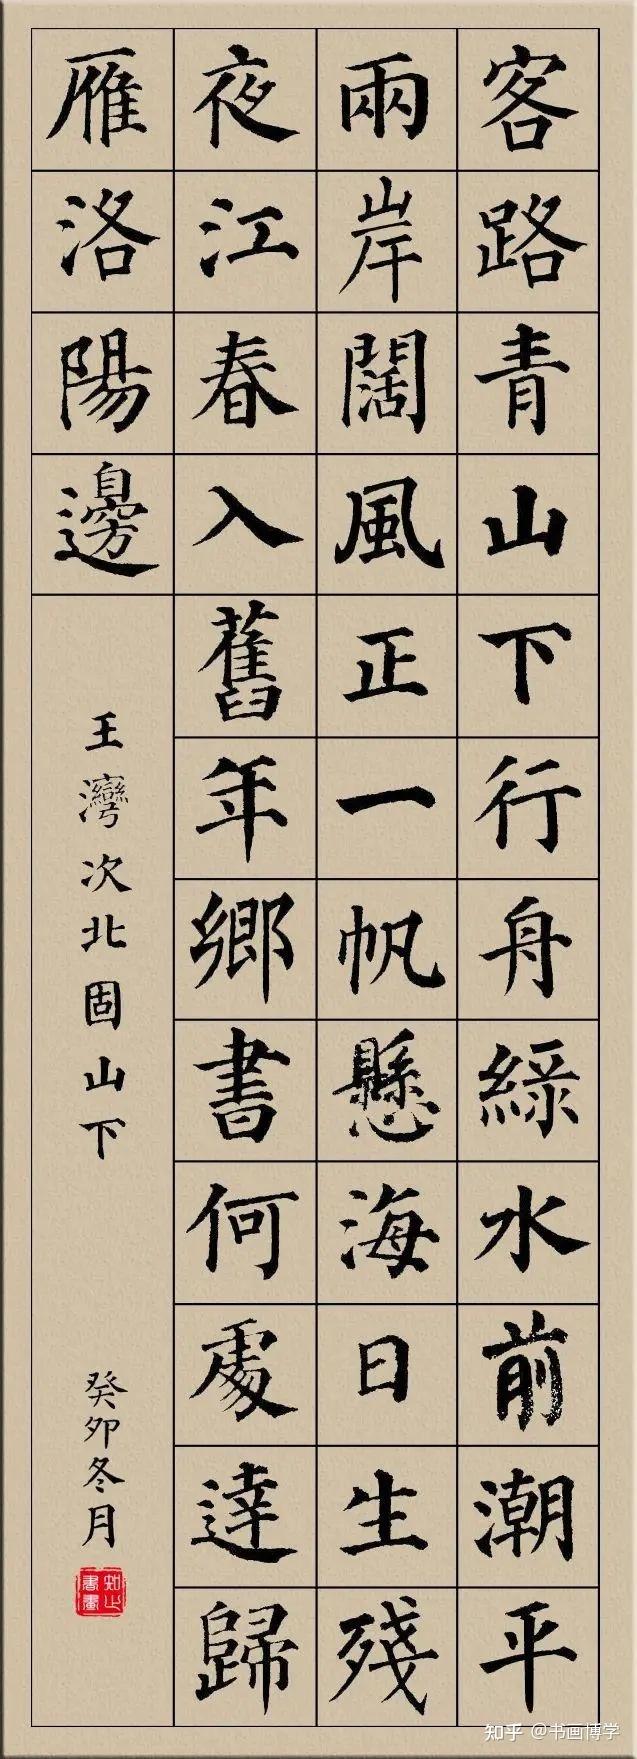 客路青山下行舟綠水前潮平
兩岸闊風正一帆懸海日生殘
夜江春入舊年鄉書何處達歸
雁洛陽邊
王灣次北固山下
癸卯冬月
知止書畫
知乎 @书画博学